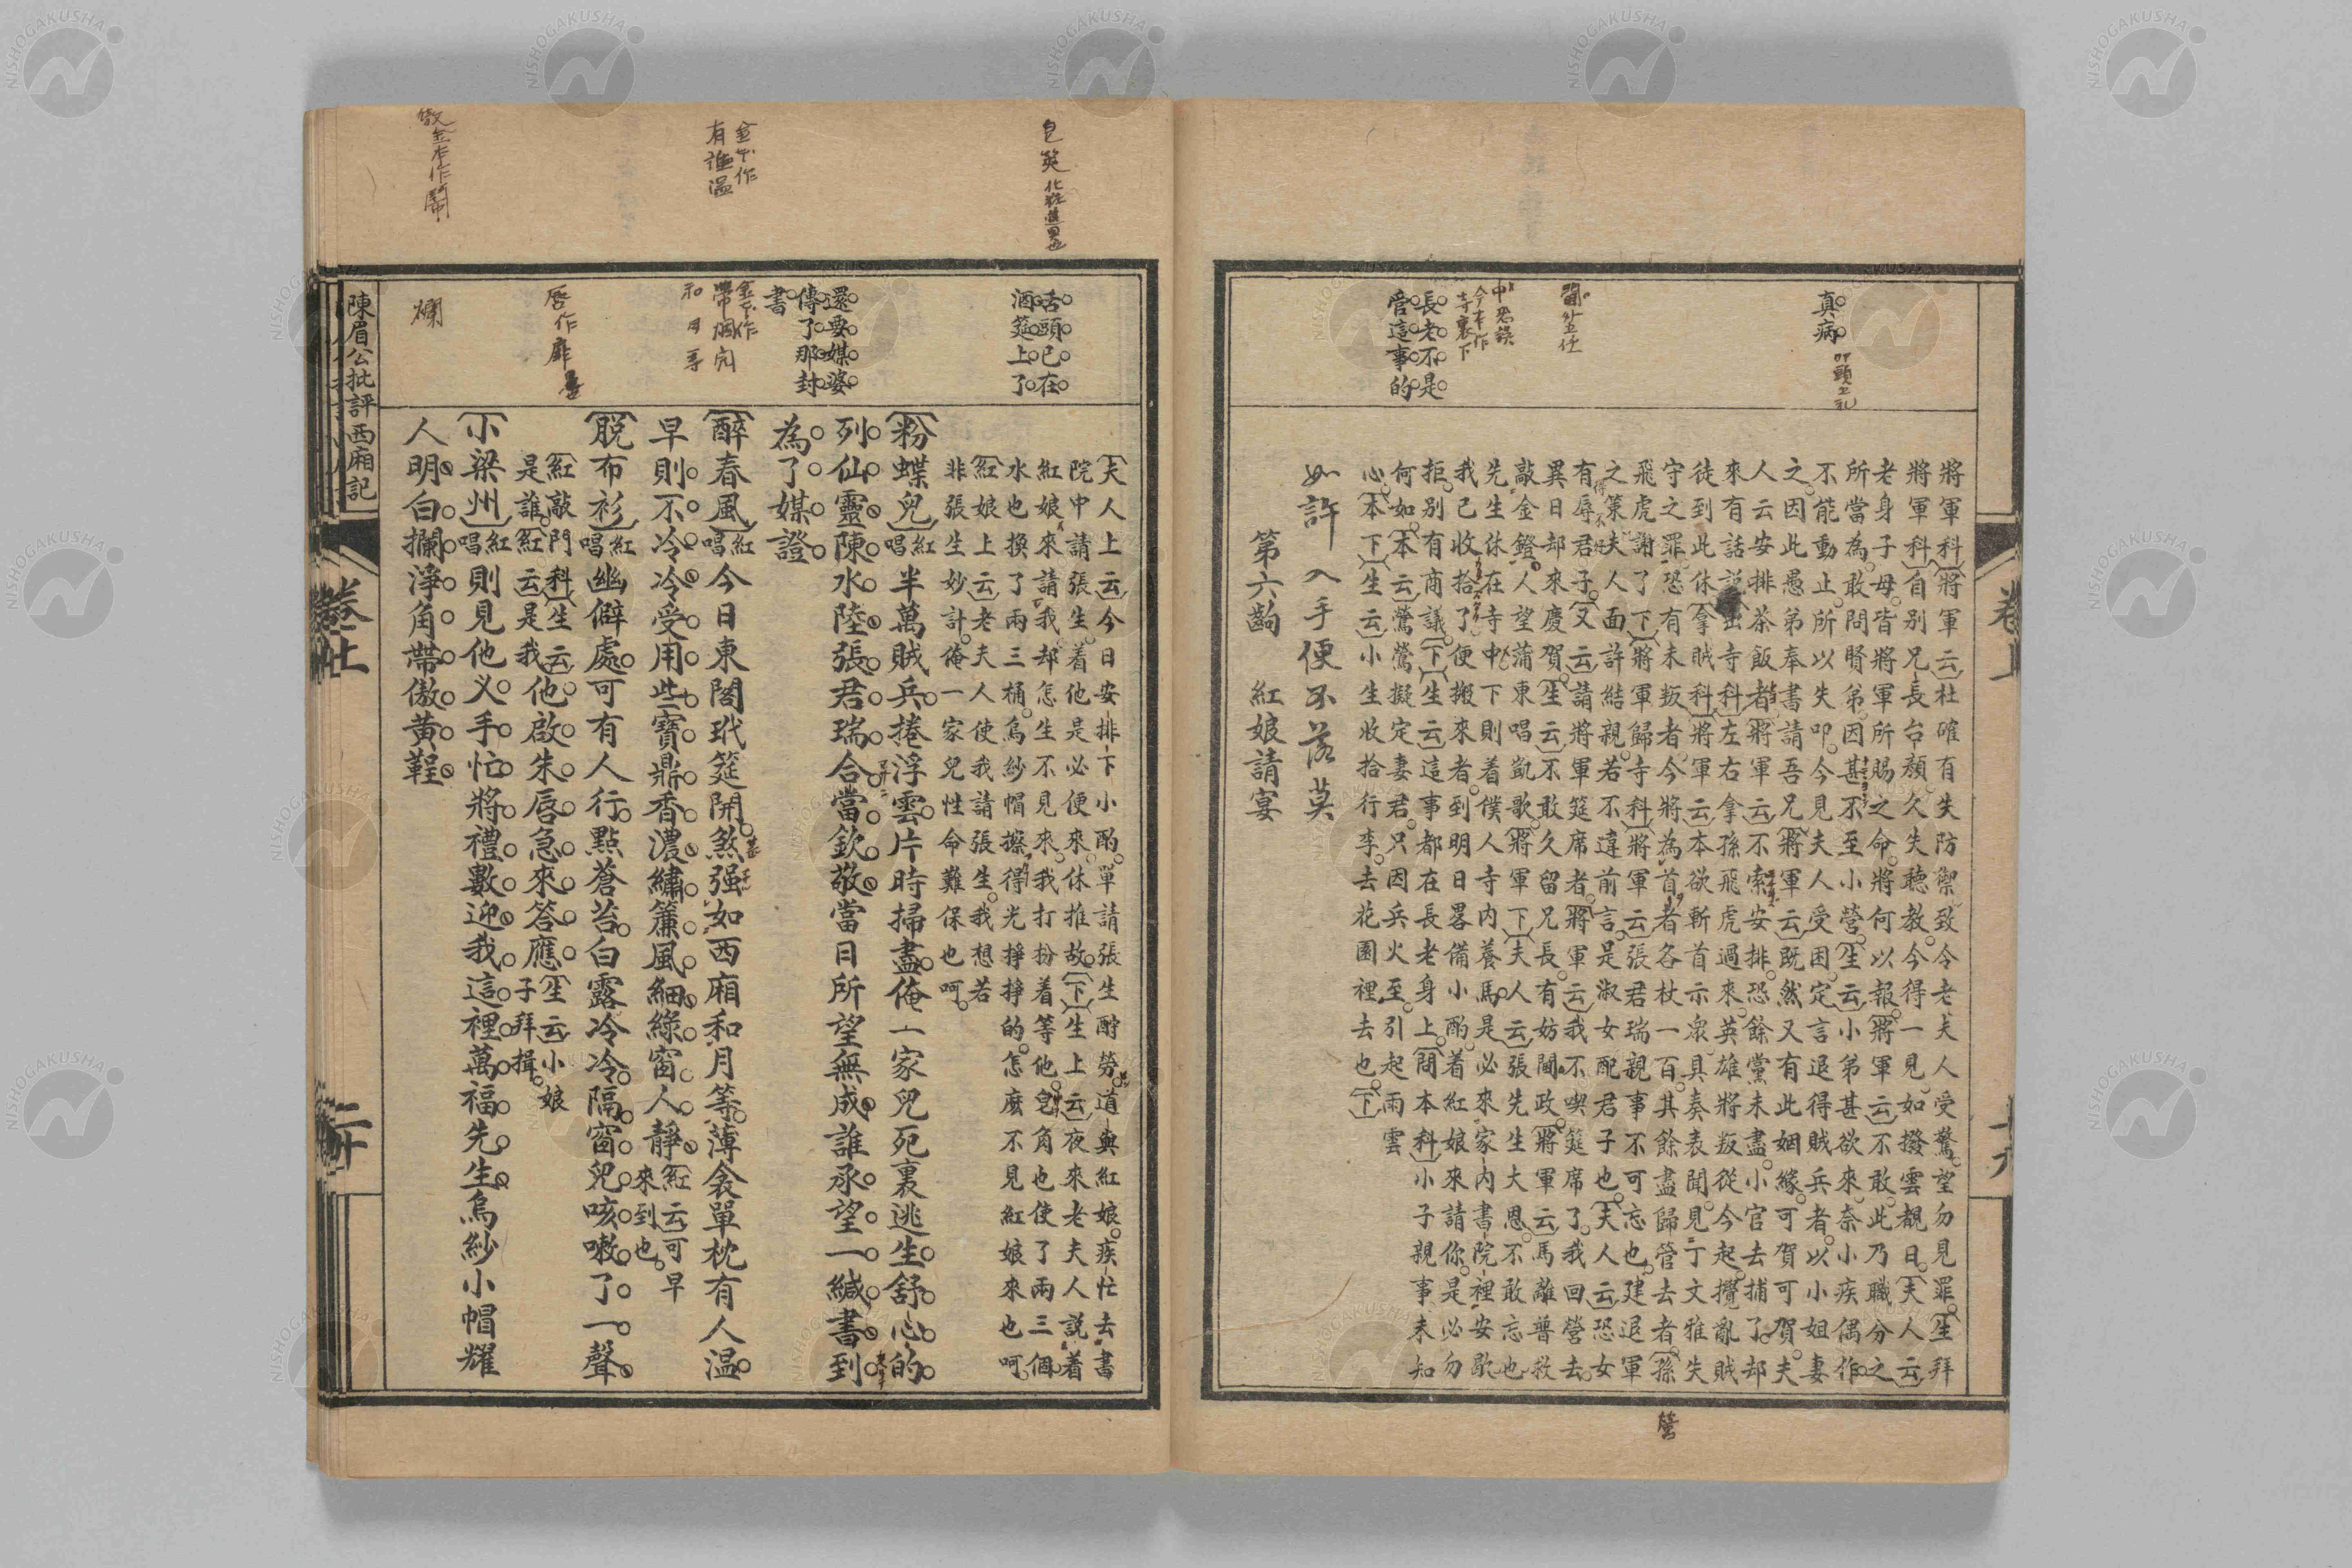 真病
長老不是
管這事的
將軍科將軍云杜確有失防禦致令老夫人受驚望勿見罪生拜
將軍科自別兄長台顏久失聽教今得一見如撥雲覩日夫人云
老身子母皆將軍所賜之命將何以報將軍云不敢此乃職分之
所當為敢問賢弟因甚不至小營生云小弟甚欲來奈小疾偶作
不能動止所以失叩今見夫人受困定言退得賊兵者以小姐妻
之因此愚弟奉書請吾兄將軍云既然又有此姻緣可賀可賀夫
人云安排茶飯者將軍云不索安排恐餘黨未盡小官去捕了却
來有話説出寺科左右拿孫飛虎過來英雄將叛從今起攪亂賊
徒到此休拿賊科將軍云本欲斬首示衆具奏表聞見丁文雅失
守之罪恐有未叛者今將為首者各杖一百其餘盡歸管去者孫
飛虎謝了下將軍歸寺科將軍云張君瑞親事不可忘也建退軍
之策夫人面許結親若不違前言是淑女配君子也夫人云恐女
有辱君子又云請將軍筵席者將軍云我不喫筵席了我回營去
異日却來慶賀生云不敢久留兄長有妨閫政將軍云馬離普救
敲金鐙人望蒲東唱凱歌將軍下夫人云張先生大恩不敢忘也
先生休在寺中下則着僕人寺内養馬是必來家内書院裡安歇
我已收拾了便搬來者到明日畧備小酌着紅娘來請你是必勿
拒别有商議下生云這事都在長老身上問本科小子親事未知
何如本云鶯鶯擬定妻君只因兵火至引起雨雲
心本下生云小生收拾行李去花園裡去也下
如許入手便不落莫
第六齣　紅娘請宴
卷上
十九
舌頭已在
酒筵上了
還要媒婆
傳了那封
書
夫人上云今日安排下小酌單請張生酧勞道與紅娘疾忙去書
院中請張生着他是必便來休推故下生上云夜來老夫人説着
紅娘來請我却怎生不見來我打扮着等他皂角也使了兩三個
水也換了兩三桶烏紗帽擦得光掙掙的怎麽不見紅娘來也呵
紅娘上云老夫人使我請張生我想若
非張生妙計俺一家兒性命難保也呵
粉蝶兒紅唱半萬賊兵捲浮雲片時掃盡俺一家兒死裏逃生舒心的
列仙靈陳水陸張君瑞合當欽敬當日所望無成誰承望一緘書到
為了媒證
醉春風紅唱今日東閣玳筵開煞强如西廂和月等薄衾單枕有人温
早則不冷冷受用些寶鼎香濃繡簾風細綠窗人靜紅云可早來到也
脱布衫紅唱幽僻處可有人行點蒼苔白露冷冷隔窗兒咳嗽了一聲
紅敲門科生云是誰紅云是我他啟朱唇急來答應生云小娘子拜揖
小梁州紅唱則見他义手忙將禮數迎我這裡萬福先生烏紗小帽耀
人明白攔淨角帶傲黃鞓
陳眉公批評西廂記
卷上
二十
金本作
有誰温
傲金本作鬧
爛